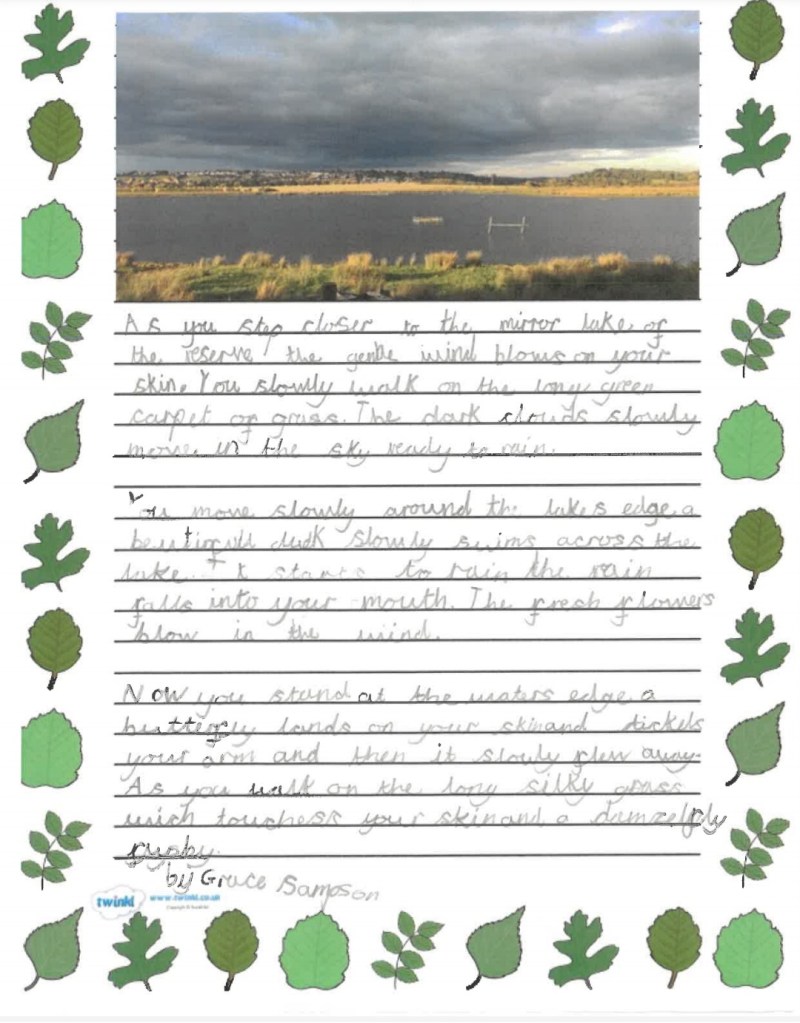 As you step closer to the mirror lake of
the reserve the gentle wind blows on your
skin. You slowly walk on the long green
carpet of grass. The dark clouds slowly
move in the sky ready to rain.
You move slowly around the lakes edge a
beutifull duck slowly swims across the
lake. It starts to rain the rain
falls into your mouth. The fresh flowers
blow in the wind.
Now you stand at the waters edge a
butterfly lands on your skin and tickels
your arm and then it slowly flew away.
As you walk on the long silky grass
wich touchess your skin and a damzelfly
by Grace Sampson
twinkl www.twinkl.co.uk